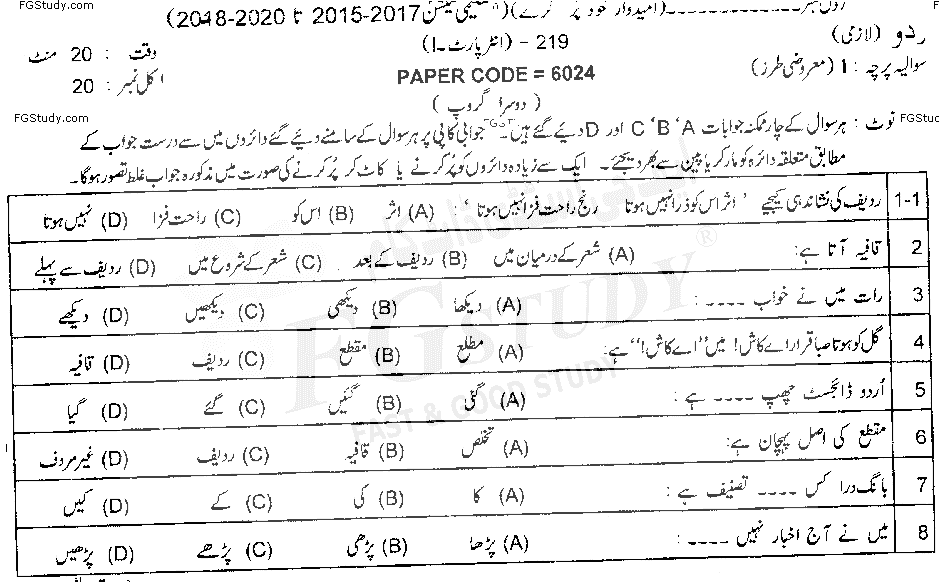 FGStudy.com
رول نمبر ۔۔۔۔۔۔ (امیدوار خود پُر کرے) (تعلیمی سیشن 2017-2015 تا 2020-2018)
اردو (لازمی) 219 - (انٹر پارٹ - I) وقت : 20 منٹ
سوالیہ پرچہ : 1 (معروضی طرز) PAPER CODE = 6024 کل نمبر : 20
(دوسرا گروپ)
FGStudy.com
نوٹ : ہر سوال کے چار ممکنہ جوابات A ، B ، C اور D دیئے گئے ہیں۔ جوابی کاپی پر ہر سوال کے سامنے دیئے گئے دائروں میں سے درست جواب کے
مطابق متعلقہ دائرہ کو مارکر یا پین سے بھر دیجئے۔ ایک سے زیادہ دائروں کو پُر کرنے یا کاٹ کر پُر کرنے کی صورت میں مذکورہ جواب غلط تصور ہوگا۔
1-1 ردیف کی نشاندہی کیجیے ' اثر اس کو ذرا نہیں ہوتا رنج راحت فزا نہیں ہوتا ' : (A) اثر (B) اس کو (C) راحت فزا (D) نہیں ہوتا
2 قافیہ آتا ہے : (A) شعر کے درمیان میں (B) ردیف کے بعد (C) شعر کے شروع میں (D) ردیف سے پہلے
3 رات میں نے خواب ۔۔۔۔ : (A) دیکھا (B) دیکھی (C) دیکھیں (D) دیکھے
4 گل کو ہوتا صبا قرار اے کاش! میں "اے کاش!" ہے : (A) مطلع (B) مقطع (C) ردیف (D) قافیہ
5 اُردو ڈائجسٹ چھپ ۔۔۔۔ ہے : (A) گئی (B) گئیں (C) گئے (D) گیا
6 مقطع کی اصل پہچان ہے : (A) تخلص (B) قافیہ (C) ردیف (D) غیر مردف
7 بانگ درا کس ۔۔۔۔ تصنیف ہے : (A) کا (B) کی (C) کے (D) کیں
8 میں نے آج اخبار نہیں ۔۔۔۔ : (A) پڑھا (B) پڑھی (C) پڑھے (D) پڑھیں
FG STUDY ®
FAST & GOOD STUDY